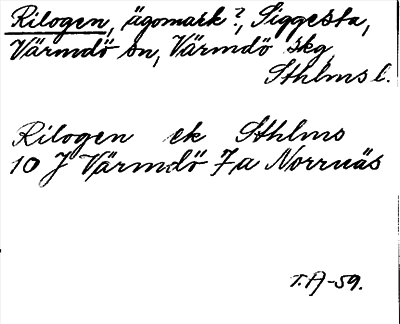 Rilogen, ägomark?, Siggesta,
Värmdö sn, Värmdö skg,
Sthlms l.
Rilogen ek Sthlms
10 J Värmdö 7a Norrnäs
T.A-59.